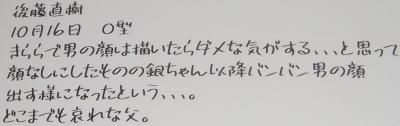 後藤直樹
10月16日　O型
きららで男の顔は描いたらダメな気がする、、、と思って
顔なしにしたものの銀ちゃん以降バンバン男の顔
出す様になったという、、、。
どこまでも哀れな父。